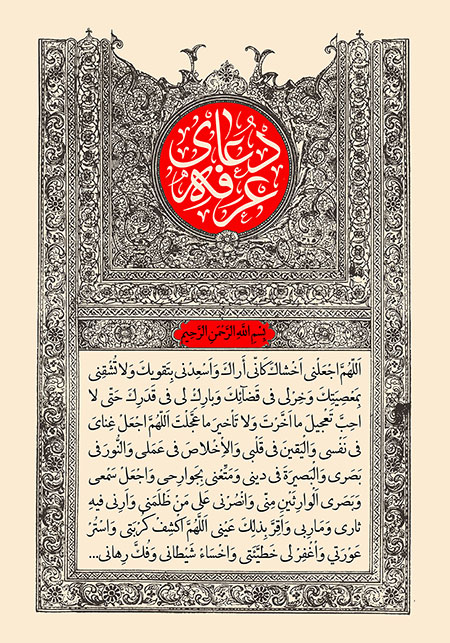 دعای
عرفه
بِسْمِ اللهِ الرَّحْمنِ الرَّحیمِ
اَللّهُمَّ اجْعَلْنى اَخْشاكَ كَاَنّى اَراكَ وَاَسْعِدْنى بِتَقْويكَ وَلا تُشْقِنى
بِمَعْصِيَتِكَ وَخِرْلى فى قَضآئِكَ وَبارِكْ لى فى قَدَرِكَ حَتّى لا
اُحِبَّ تَعْجيلَ ما اَخَّرْتَ وَلا تَاْخيرَ ما عَجَّلْتَ اَللّهُمَّ اجْعَلْ غِناىَ
فى نَفْسى وَالْيَقينَ فى قَلْبى وَالاِْخْلاصَ فى عَمَلى وَالنُّورَ فى
بَصَرى وَالْبَصيرَةَ فى دينى وَمَتِّعْنى بِجَوارِحى وَاجْعَلْ سَمْعى
وَبَصَرى اَلْوارِثَيْنِ مِنّى وَانْصُرْنى عَلى مَنْ ظَلَمَنى وَاَرِنى فيهِ
ثارى وَمَارِبى وَاَقِرَّ بِذلِكَ عَيْنى اَللَّهُمَّ اكْشِفْ كُرْبَتى وَاسْتُرْ
عَوْرَتي وَاْغْفِرْ لى خَطيَّئَتى وَاخْسَاءْ شَيْطانى وَفُكَّ رِهانى...